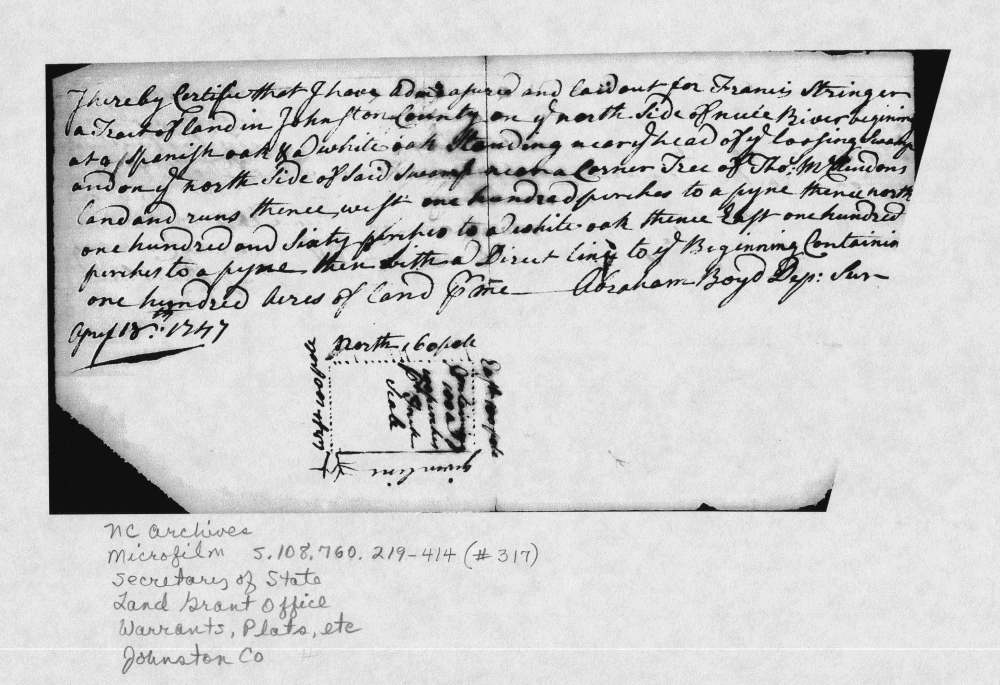 I hereby Certifie that I have admeasured and laid out for Francis Stringer
a Tract of land in Johnston County on ye north Side of nuse River begining
at a Spanish oak & a white oak Standing near ye head of ye loosing Swamp
and on ye north Side of Said Swamp near a Corner Tree of Tho: McClendons
land and runs thence west one hundred perches to a pyne thence north
one hundred and Sixty perches to a white oak thence East one hundred
perches to a pyne then with a Direct line to ye Beginning Containin
one hundred Acres of land pr me Abraham Boyd Dep: Sur
April 18th: 1747
north 160 pole
west 100 pole
East 100 pole
100
Scale
NC Archives
Microfilm S.108.760.219-414 (#317)
Secretary of State
Land Grant Office
Warrants, Plats, etc
Johnston Co